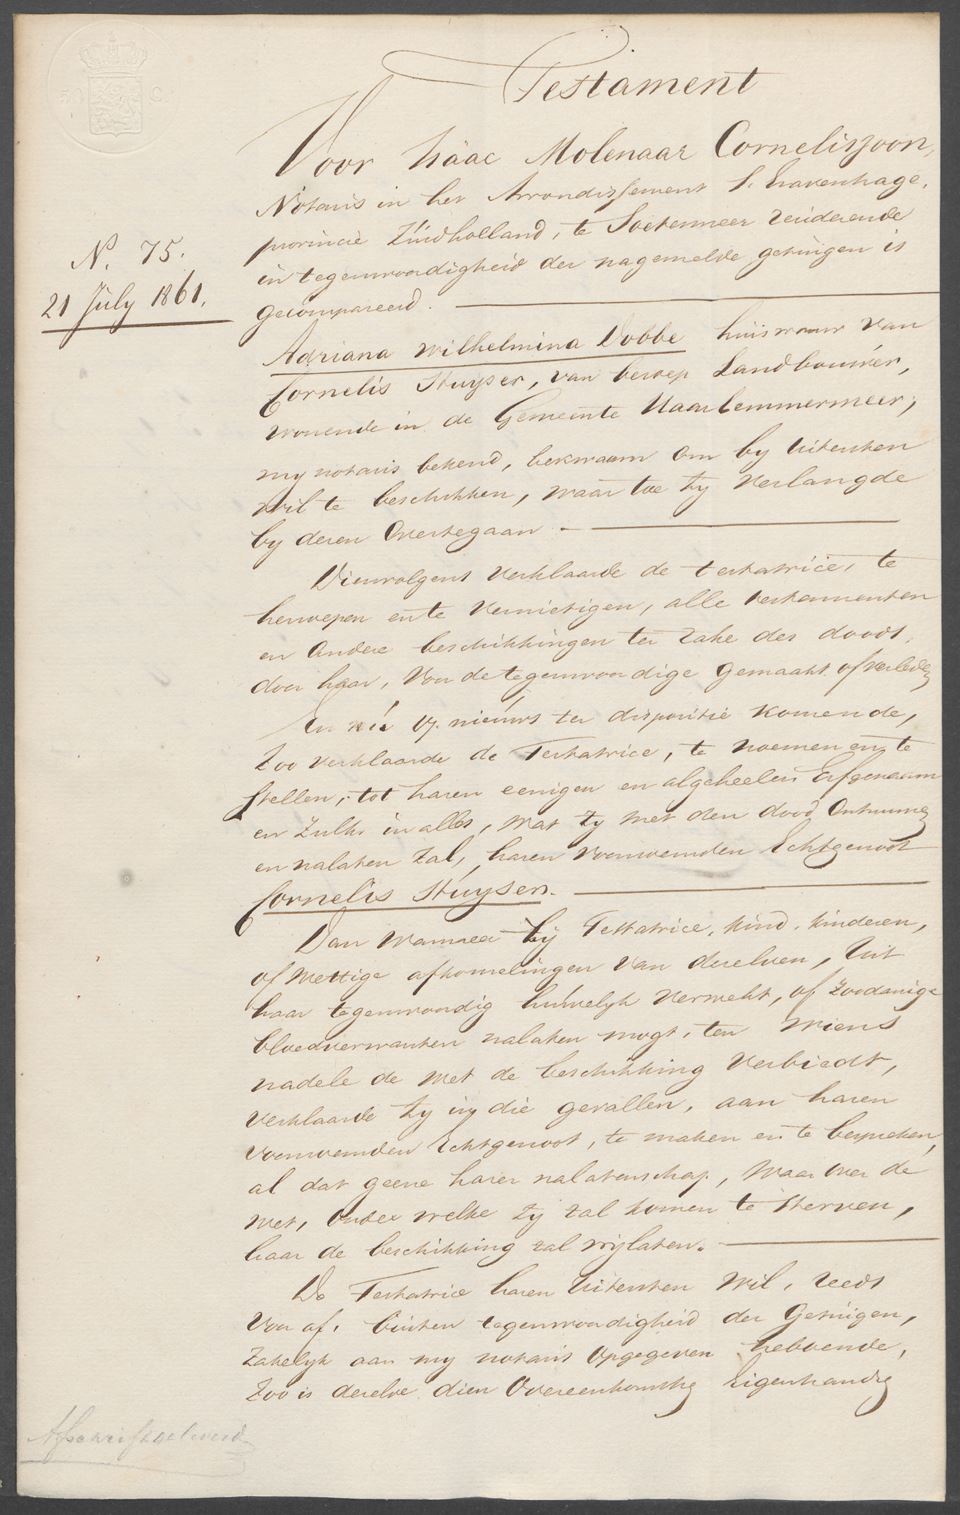 Testament
Voor Isäac Molenaar Corneliszoon,
Notaris in het Arrondissement 's Gravenhage,
provincie Zuidholland, te Soetermeer resideerende
in tegenwoordigheid der nagemelde getuigen is
gecompareerd.
N. 75.
21 July 1861.
Adriana Wilhelmina Dobbe huisvrouw van
Cornelis Stuyser, van beroep Landbouwer,
wonende in de Gemeente Haarlemmermeer,
my notaris bekend, bekwaam om by Uitersten
wil te beschikken, waar toe zy verlangde
by deren Overtegaan.
Dienvolgens verklaarde de testatrice, te
herroepen en te vernietigen, alle testamenten
en Andere beschikkingen ter zake des doods,
door haar, Voor de tegenwoordige gemaakt of verleden
En nu op nieuws ter dispositie komende,
Zoo verklaarde de Testatrice, te noemen en te
stellen, tot haren eenigen en algeheelen Erfgenaam
en zulks in alles, wat zy met den dood Ontruimen
en nalaten zal, haren voornoemden Echtgenoot
Cornelis Stuyser.
Dan wanneer zij Testatrice, kind, kinderen,
of wettige afkomelingen van dezelven, Uit
haar tegenwoordig huwelyk verwekt, of zoodanige
bloedverwanten nalaten mogt, ten wiens
nadele de wet de beschikking verbiedt,
verklaarde zy in die gevallen, aan haren
voornoemden Echtgenoot, te maken en te bespreken,
al dat geene harer nalatenschap, waar over de
wet, onder welke zy zal komen te sterven,
haar de beschikking zal vrylaten.
De Testatrice haren Uitersten wil, reeds
Voor af, buiten tegenwoordigheid der Getuigen,
zakelyk aan my notaris opgegeven hebbende,
Zoo is dezelve dien Overeenkomstig Eigenhandig
Afschrift geleverd